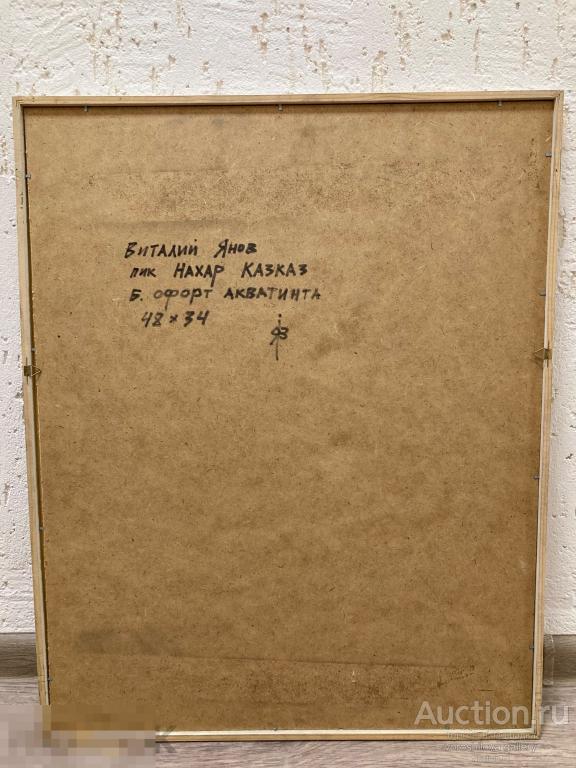 Виталий Янов
пик Нахар Казказ
Б. офорт акватинта
48 × 34
Auction.ru